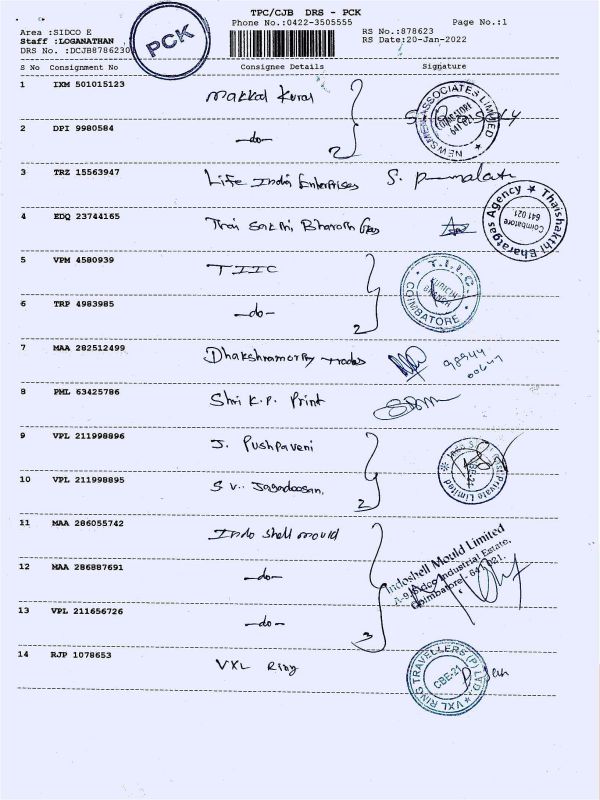 TPC/CJB DRS - PCK
Phone No.:0422-3505555
Page No.:1
Area :SIDCO E
Staff :LOGANATHAN
DRS No. :DCJB8786230
PCK
RS No.:878623
RS Date:20-Jan-2022
S No Consignment No Consignee Details Signature
1 IXM 501015123 Makkal Kural
NEWSMEN ASSOCIATES LIMITED
COIMBATORE
641 021
2 DPI 9980584 —do— 2
3 TRZ 15563947 Life India Enterprises S.
4 EDQ 23744165 Thai Sakthi Bharath Gas
Thaishakthi Bharatgas Agency
Coimbatore
641 021
5 VPM 4580939 TIIC
T.I.I.C.
COIMBATORE
6 TRP 4983985 —do— 2
7 MAA 282512499 Dhakshramorthy Trades 98944
00647
8 PML 63425786 Shri K.P. Print
9 VPL 211998896 J. Pushpaveni
Private Limited
CBE-21
10 VPL 211998895 S.V. Jagadoosan. 2
11 MAA 286055742 Indo shell mould
Indoshell Mould Limited
A-9, Sidco Industrial Estate,
Coimbatore - 641 021.
12 MAA 286887691 —do—
13 VPL 211656726 —do— 3
14 RJP 1078653 VXL Ring
VXL RING TRAVELLERS (P) LTD
CBE-21